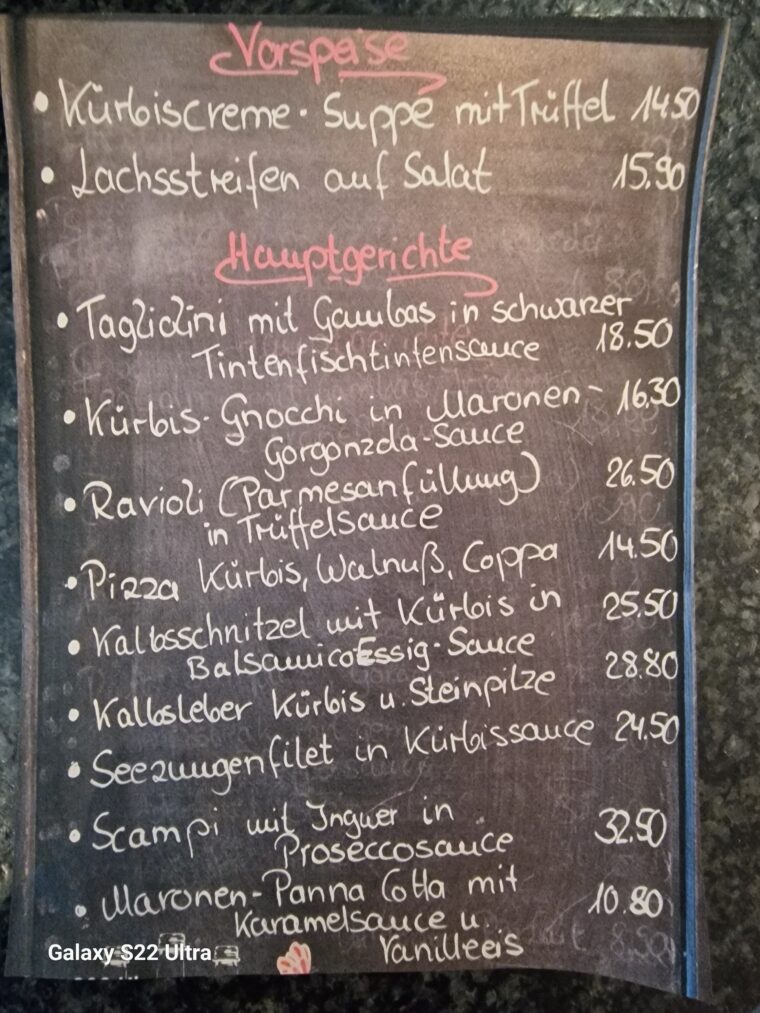 Vorspeise
• Kürbiscreme-Suppe mit Trüffel 14.50
• Lachsstreifen auf Salat 15.90
Hauptgerichte
• Tagliolini mit Gambas in schwarzer
Tintenfischtintensauce 18.50
• Kürbis-Gnocchi in Maronen- 16,30
Gorgonzola-Sauce
• Ravioli (Parmesanfüllung) 26.50
in Trüffelsauce
• Pizza Kürbis, Walnuß, Coppa 14.50
• Kalbsschnitzel mit Kürbis in 25.50
BalsamicoEssig-Sauce
• Kalbsleber Kürbis u. Steinpilze 28.80
• Seezungenfilet in Kürbissauce 24.50
• Scampi mit Ingwer in
Proseccosauce 32.50
• Maronen-Panna Cotta mit 10.80
Karamelsauce u.
Vanilleeis
Galaxy S22 Ultra